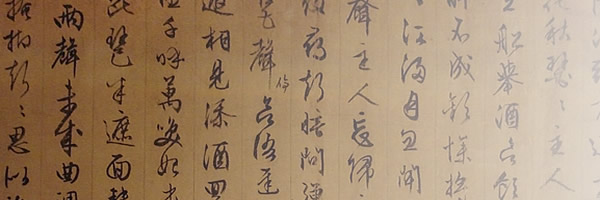 秋瑟〻主人
船舉酒欲飲
醉不成歡慘將
〻江浸月忽聞
聲主人忘歸
尋聲暗問彈
琶聲停欲語遲
邀相見添酒回
千呼萬喚始出
琵琶半遮面轉
兩聲未成曲調
掩抑聲〻思似訴